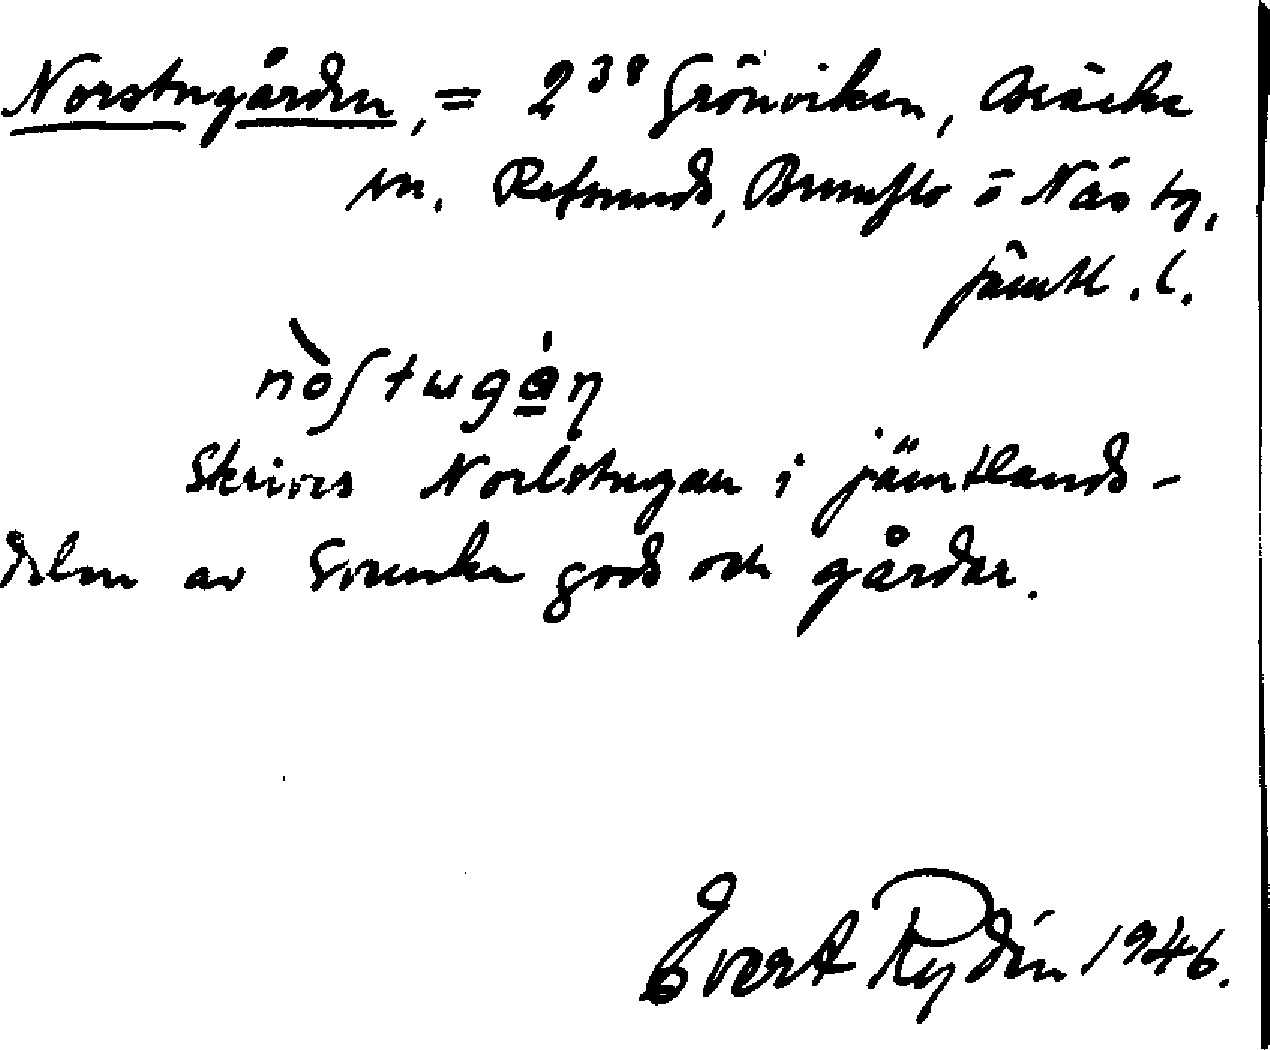 Norstugården, = 2³⁸ Grönviken, Bräcke
sn. Refsunds, Brunflo o Näs tg,
Jämtl. l.
Skrives Norlstugan i jämtlands-
delen av Svenska gods och gårdar.
Evert Rydén 1946.